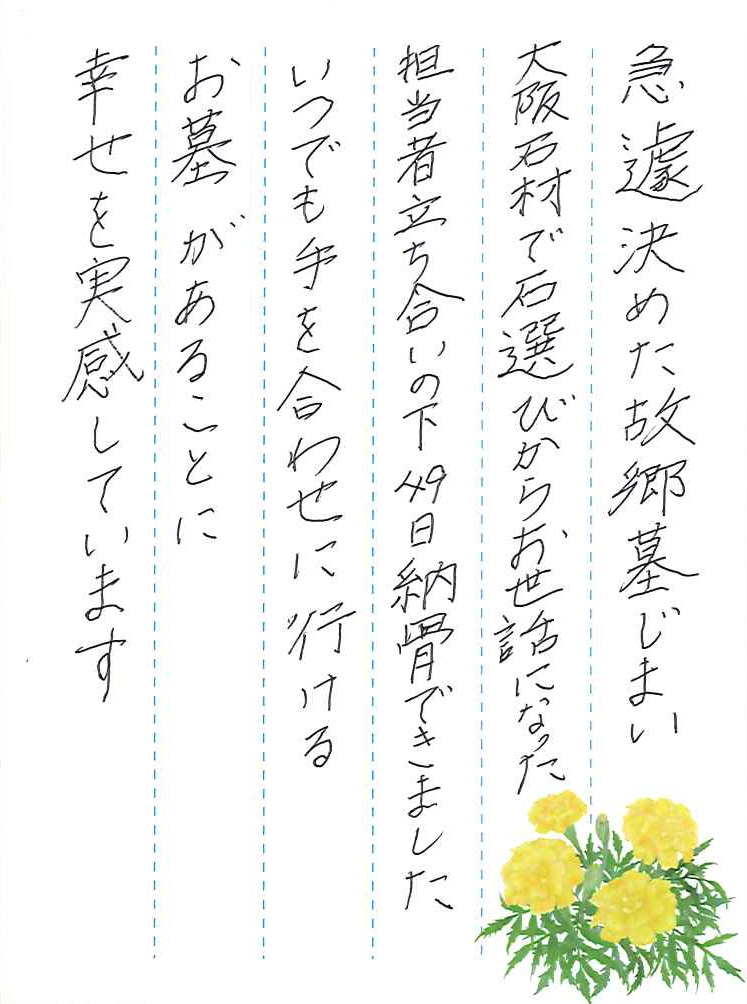 急遽決めた故郷墓じまい
大阪石材で石選びからお世話になった
担当者立ち合いの下49日納骨できました
いつでも手を合わせに行ける
お墓があることに
幸せを実感しています